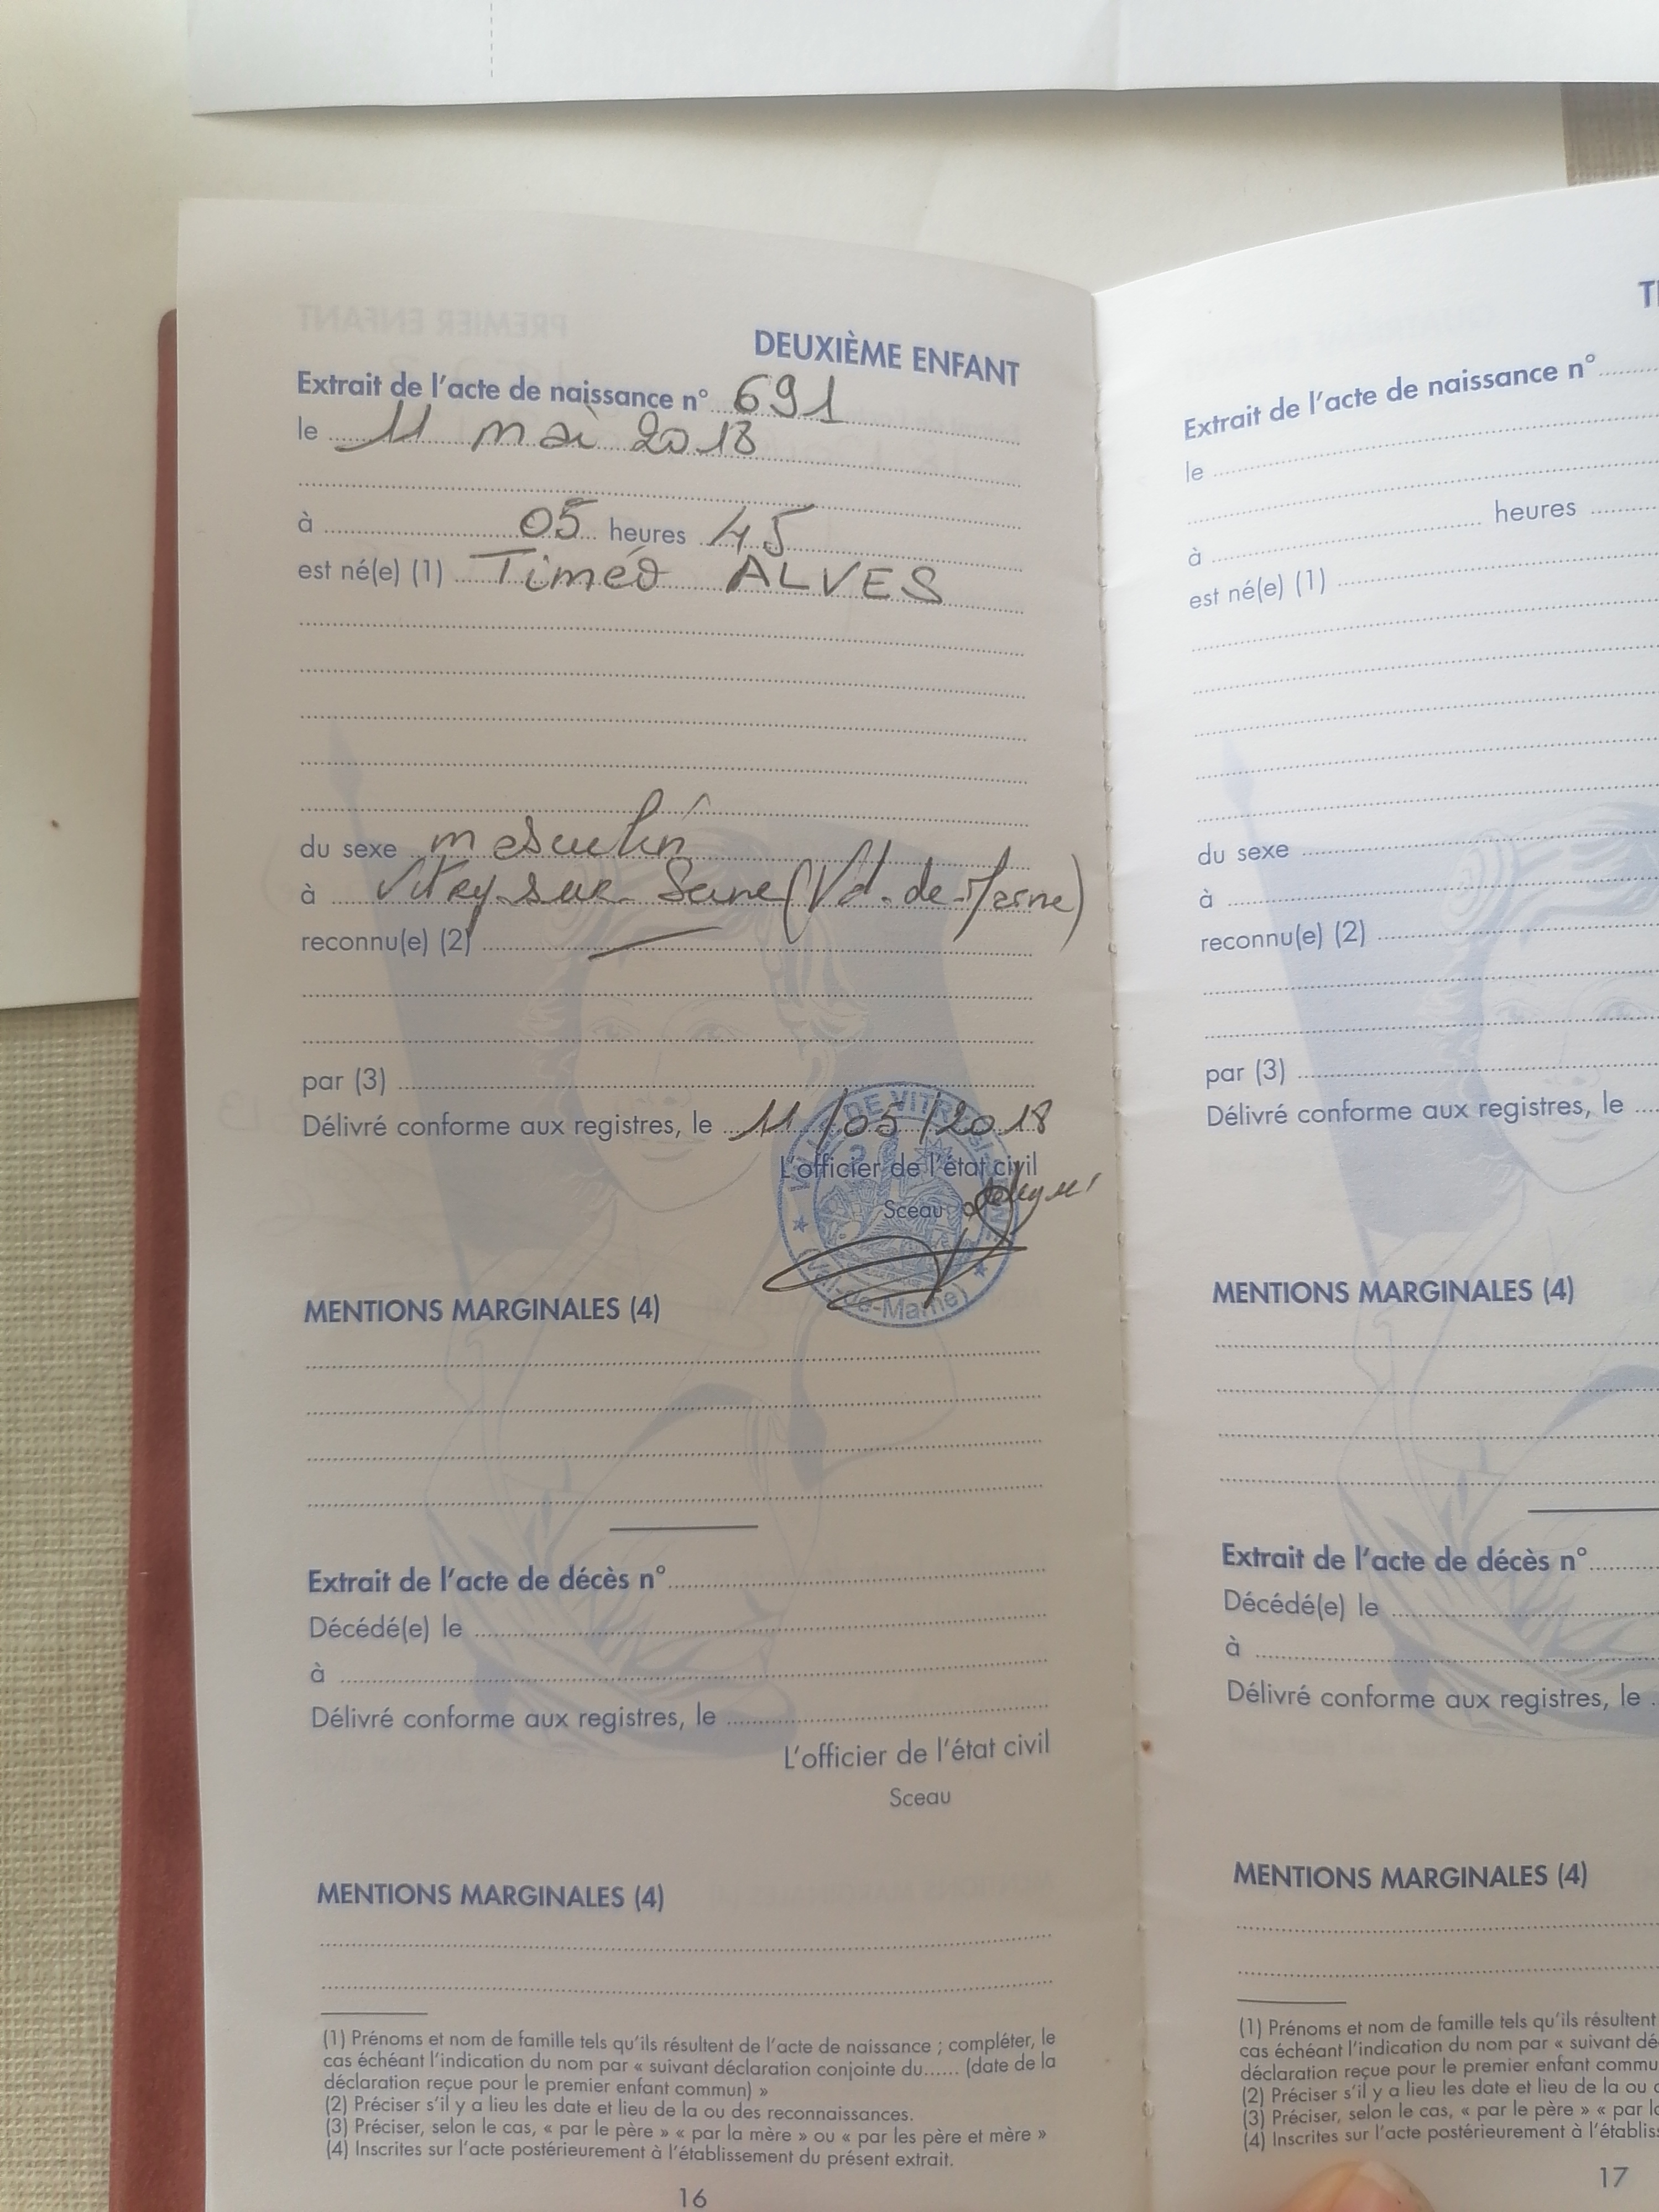 DEUXIÈME ENFANT
Extrait de l'acte de naissance n° 691
le 11 mai 2018
à 05 heures 45
est né(e) (1) Timéo ALVES
du sexe masculin
à Vitry-sur-Seine (Val-de-Marne)
reconnu(e) (2)
par (3)
Délivré conforme aux registres, le 11/05/2018
L'officier de l'état civil
Sceau
VILLE DE VITRY-SUR-SEINE
(Val-de-Marne)
MENTIONS MARGINALES (4)
Extrait de l'acte de décès n°
Décédé(e) le
à
Délivré conforme aux registres, le
L'officier de l'état civil
Sceau
MENTIONS MARGINALES (4)
(1) Prénoms et nom de famille tels qu'ils résultent de l'acte de naissance ; compléter, le
cas échéant l'indication du nom par « suivant déclaration conjointe du...... (date de la
déclaration reçue pour le premier enfant commun) »
(2) Préciser s'il y a lieu les date et lieu de la ou des reconnaissances.
(3) Préciser, selon le cas, « par le père » « par la mère » ou « par les père et mère »
(4) Inscrites sur l'acte postérieurement à l'établissement du présent extrait.
16
Extrait de l'acte de naissance n°
le
à heures
est né(e) (1)
du sexe
à
reconnu(e) (2)
par (3)
Délivré conforme aux registres, le
MENTIONS MARGINALES (4)
Extrait de l'acte de décès n°
Décédé(e) le
à
Délivré conforme aux registres, le
MENTIONS MARGINALES (4)
(1) Prénoms et nom de famille tels qu'ils résultent
cas échéant l'indication du nom par « suivant dé
déclaration reçue pour le premier enfant commu
(2) Préciser s'il y a lieu les date et lieu de la ou
(3) Préciser, selon le cas, « par le père » « par
(4) Inscrites sur l'acte postérieurement à l'établis
17